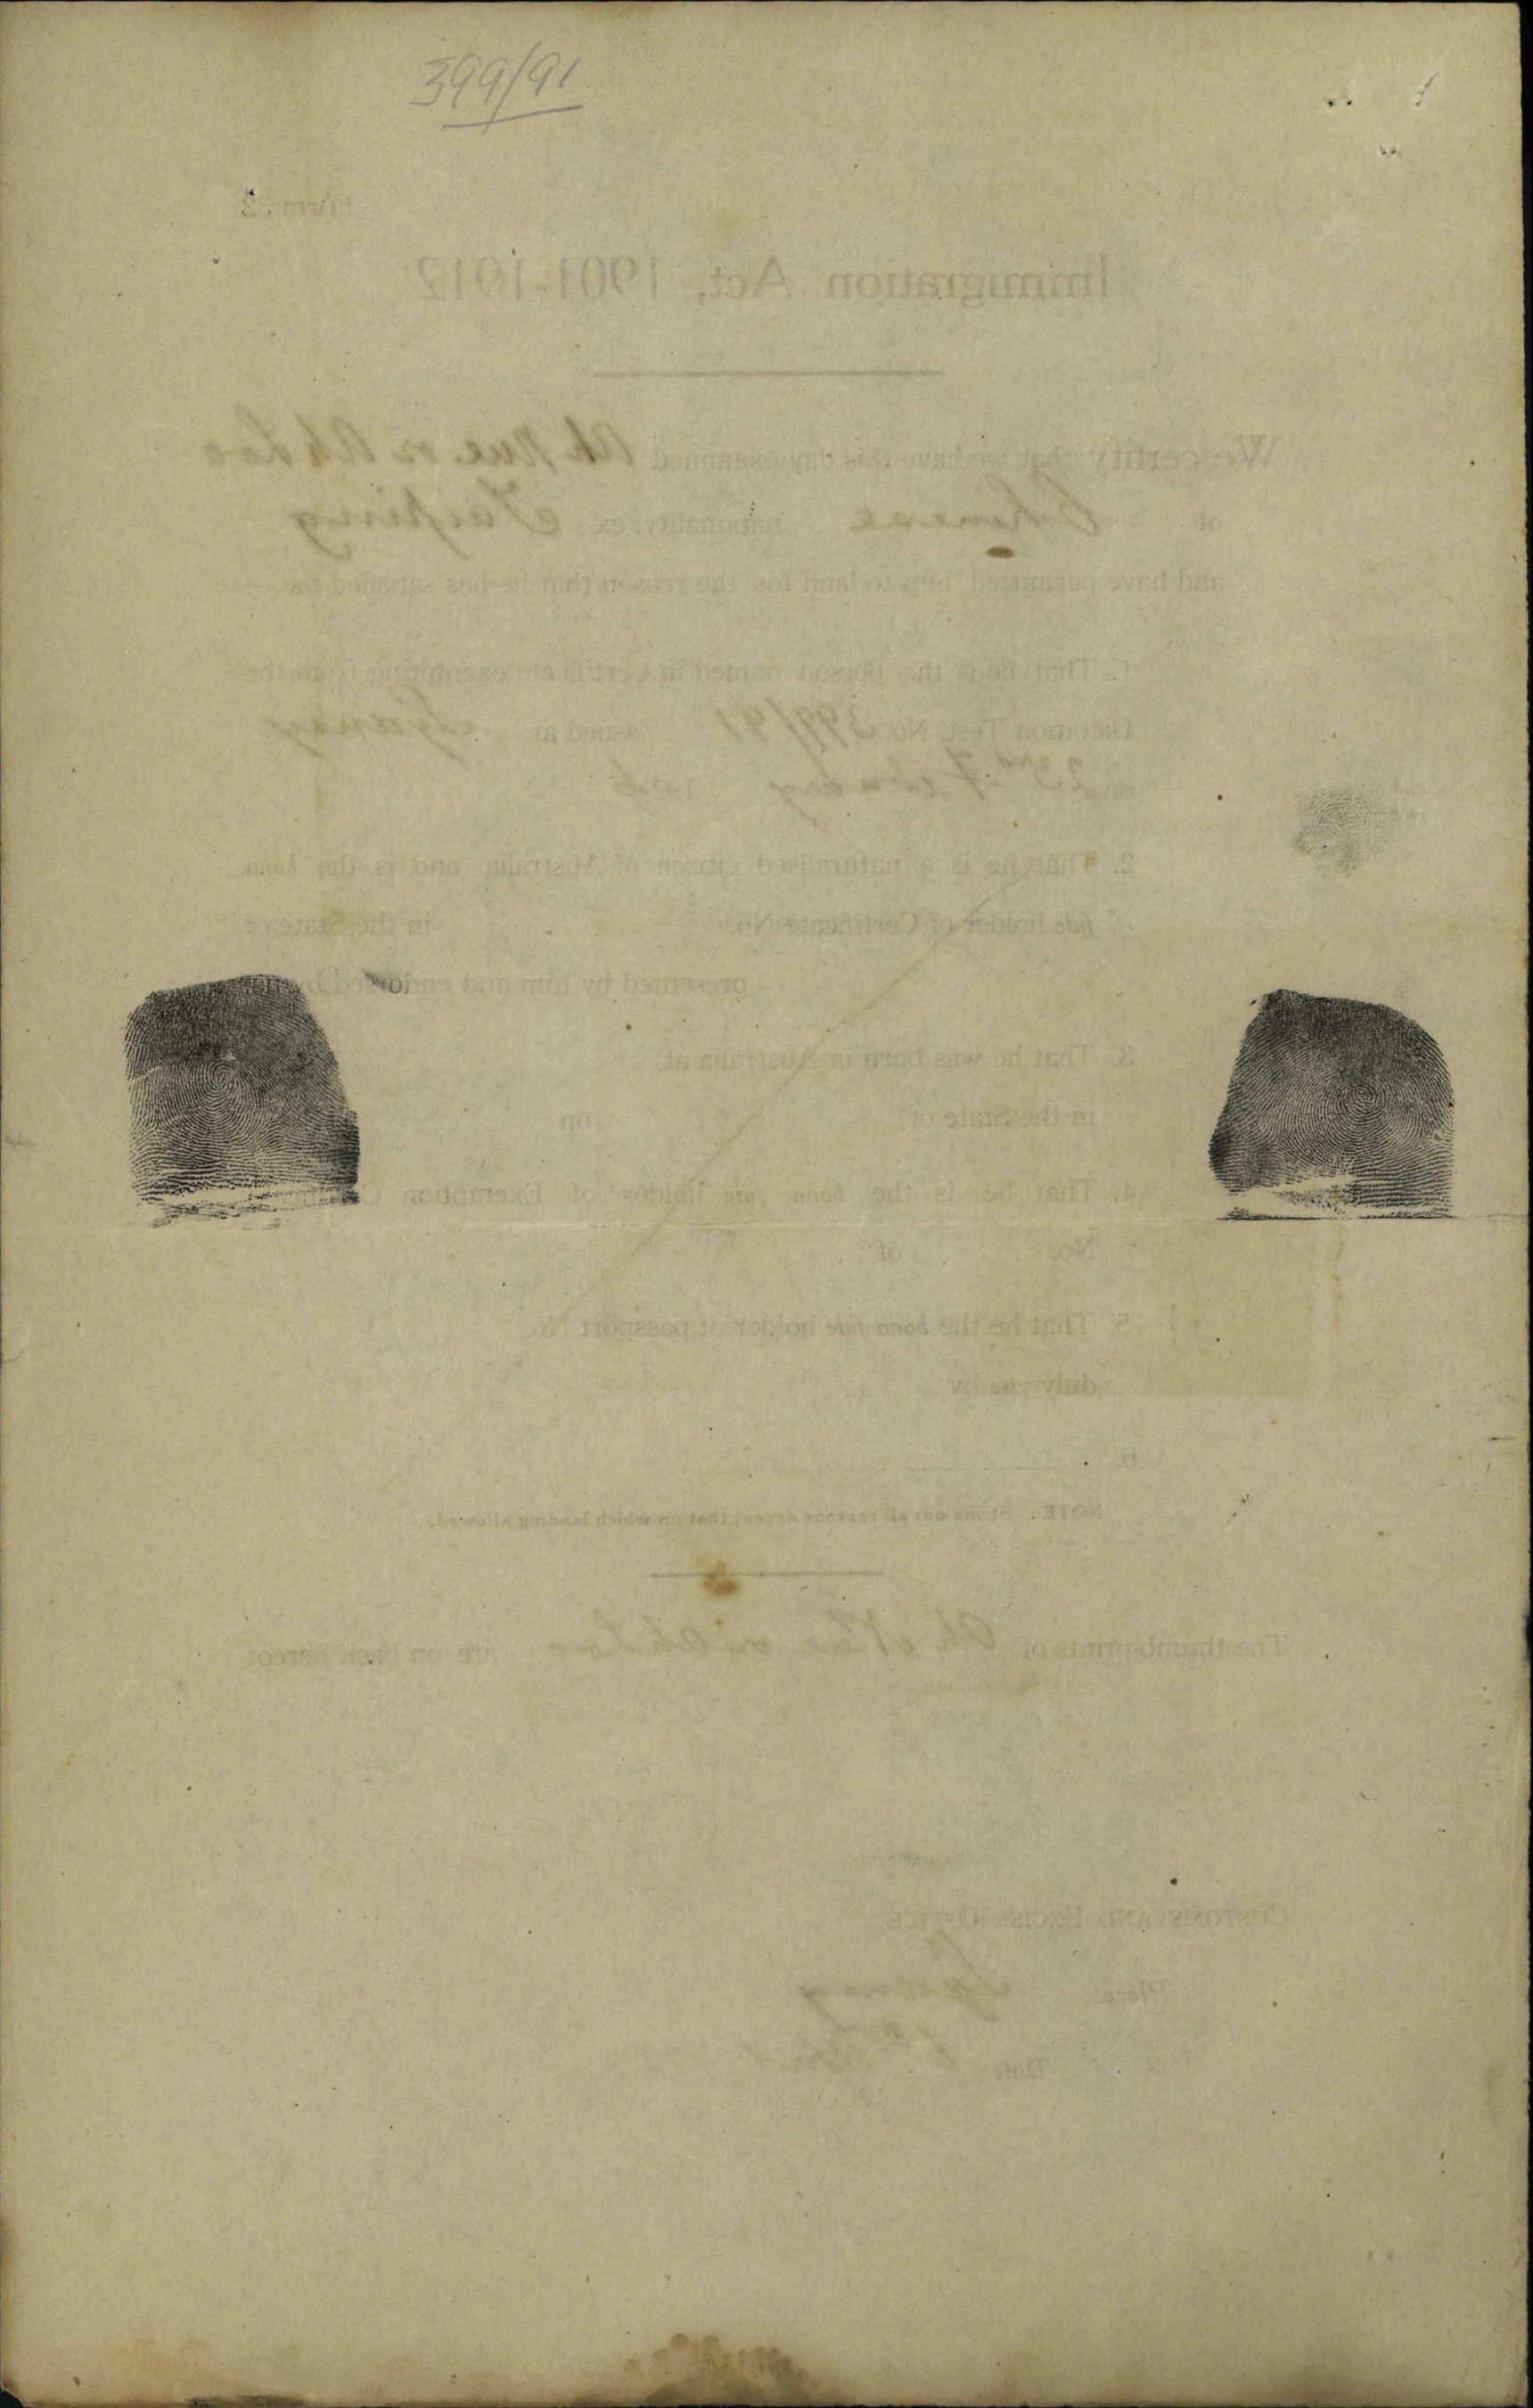 399/91
Form 2.
Immigration Act, 1901-1912
We certify that we have this day examined Ah or Ah Loo
of Chinese nationality, ex Taiping
and have permitted him to land for the reason that he has satisfied us:—
1. That he is the person named in Certificate exempting from the
Dictation Test No. 399/91 issued at Sydney
on 23rd February
2. That he is a naturalised citizen of Australia and is the bona
fide holder of Certificate No. in the State of
presented by him and endorsed
3. That he was born in Australia at
in the State of on
4. That he is the bona fide holder of Exemption
No. of
5. That he the bona fide holder of passport No.
duly by
6.
NOTE: Strike out all reasons except that on which landing allowed.
The thumb-prints of Ah or Ah Loo are on back hereof
CUSTOMS AND EXCISE OFFICE,
Place Sydney
Date